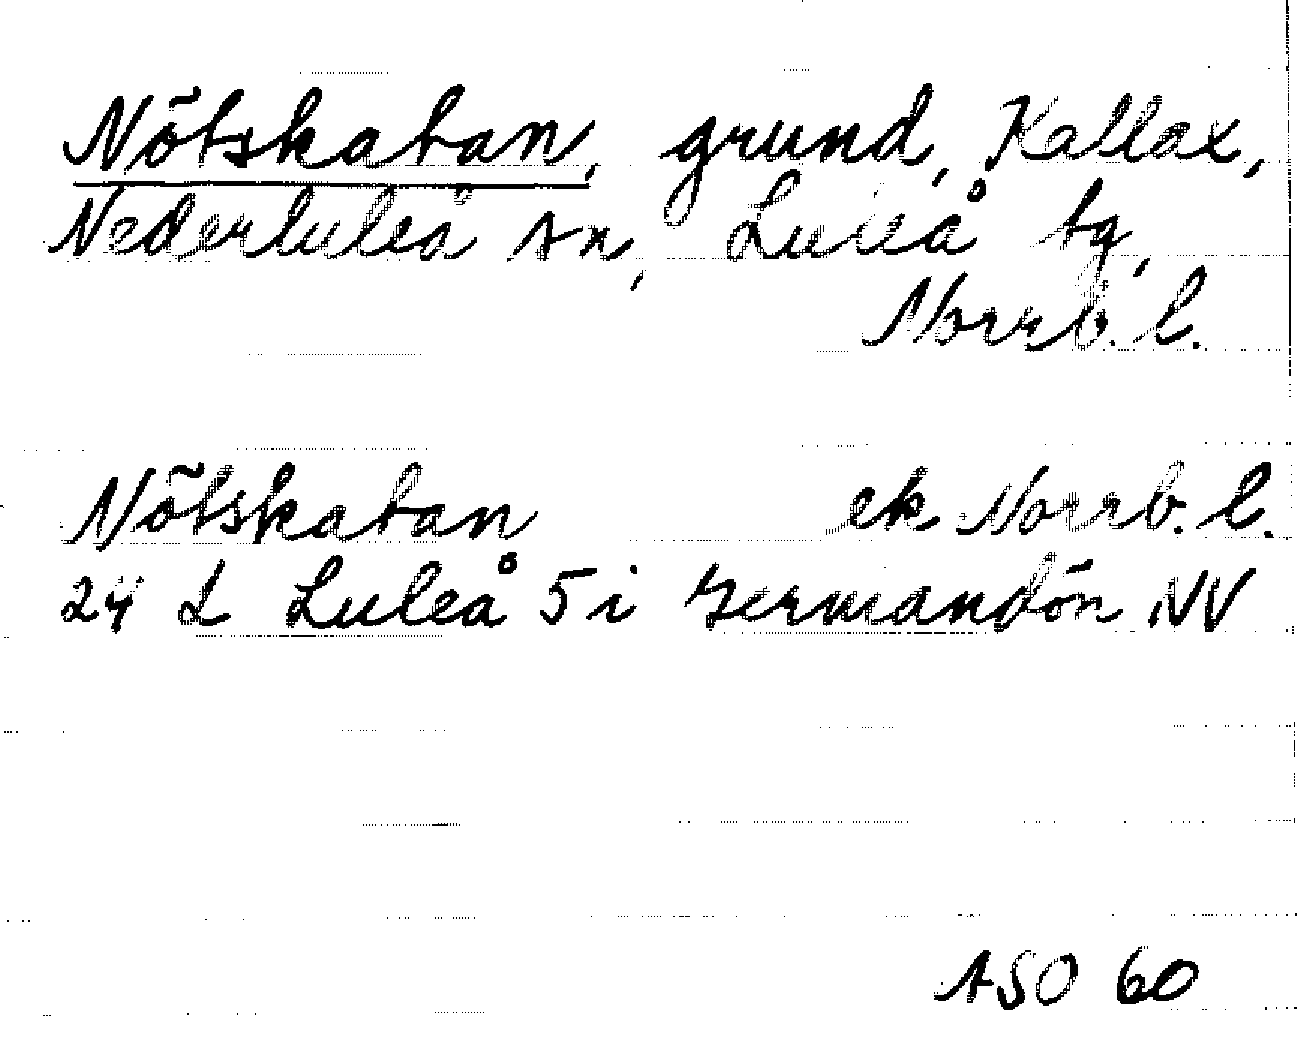 Nötskatan, grund, Kallax,
Nederluleå sn, Luleå tg,
Norrb. l.
Nötskatan ek Norrb. l.
24 L Luleå 5 i Germandön NV
ASO 60